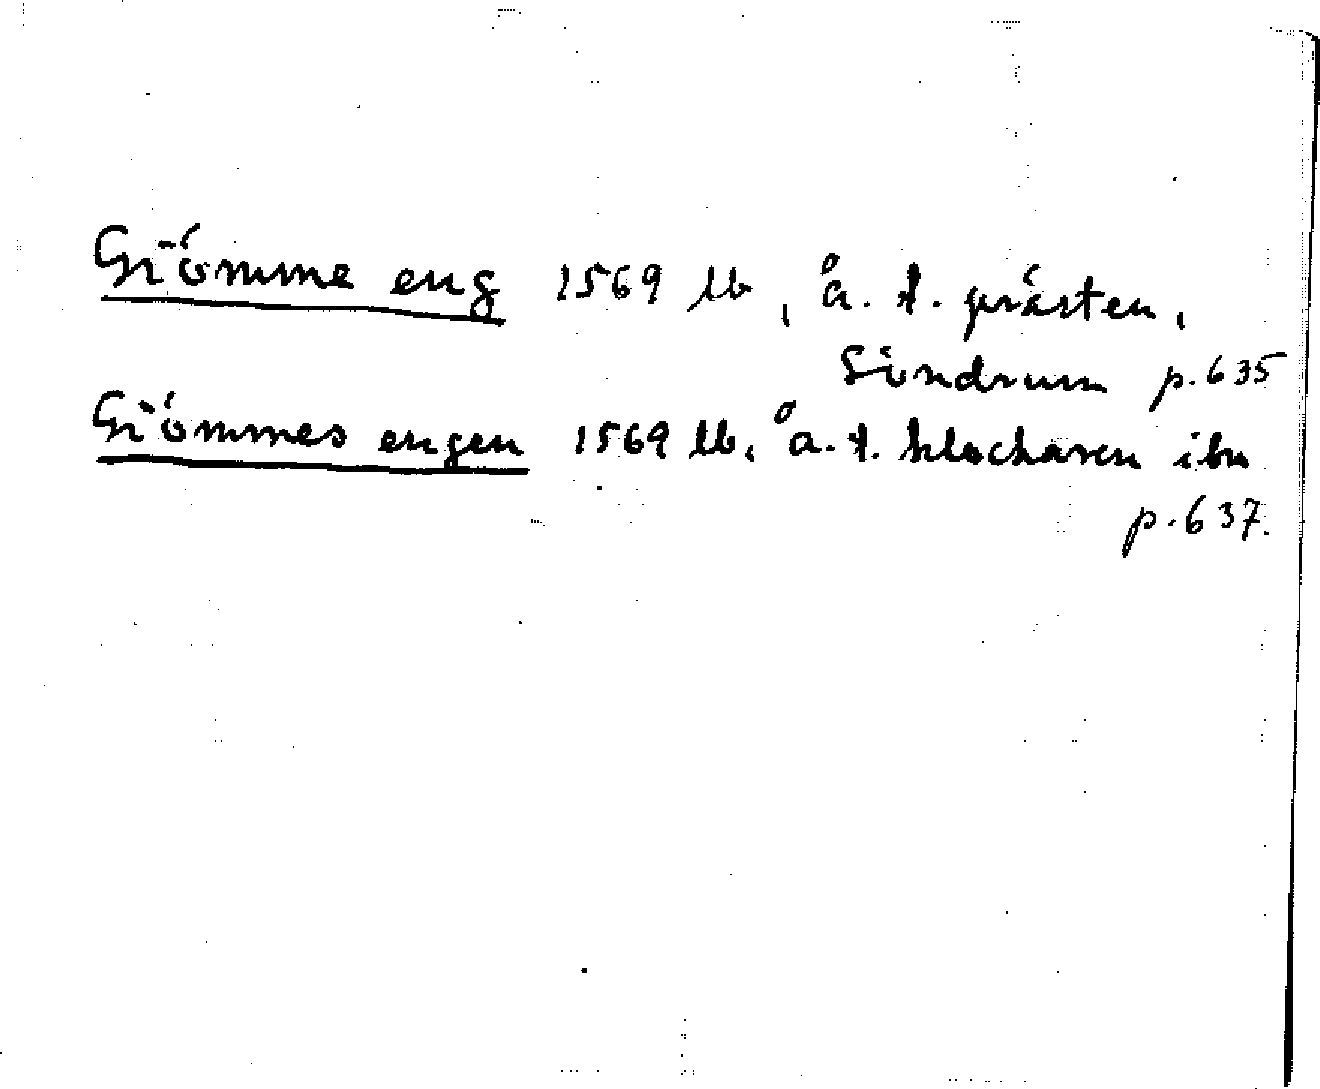 Giömme eng 1569 lb, å. t. prästen,
Söndrum p. 635
Giömmes engen 1569 lb, å. t. klockaren ibm
p. 637.